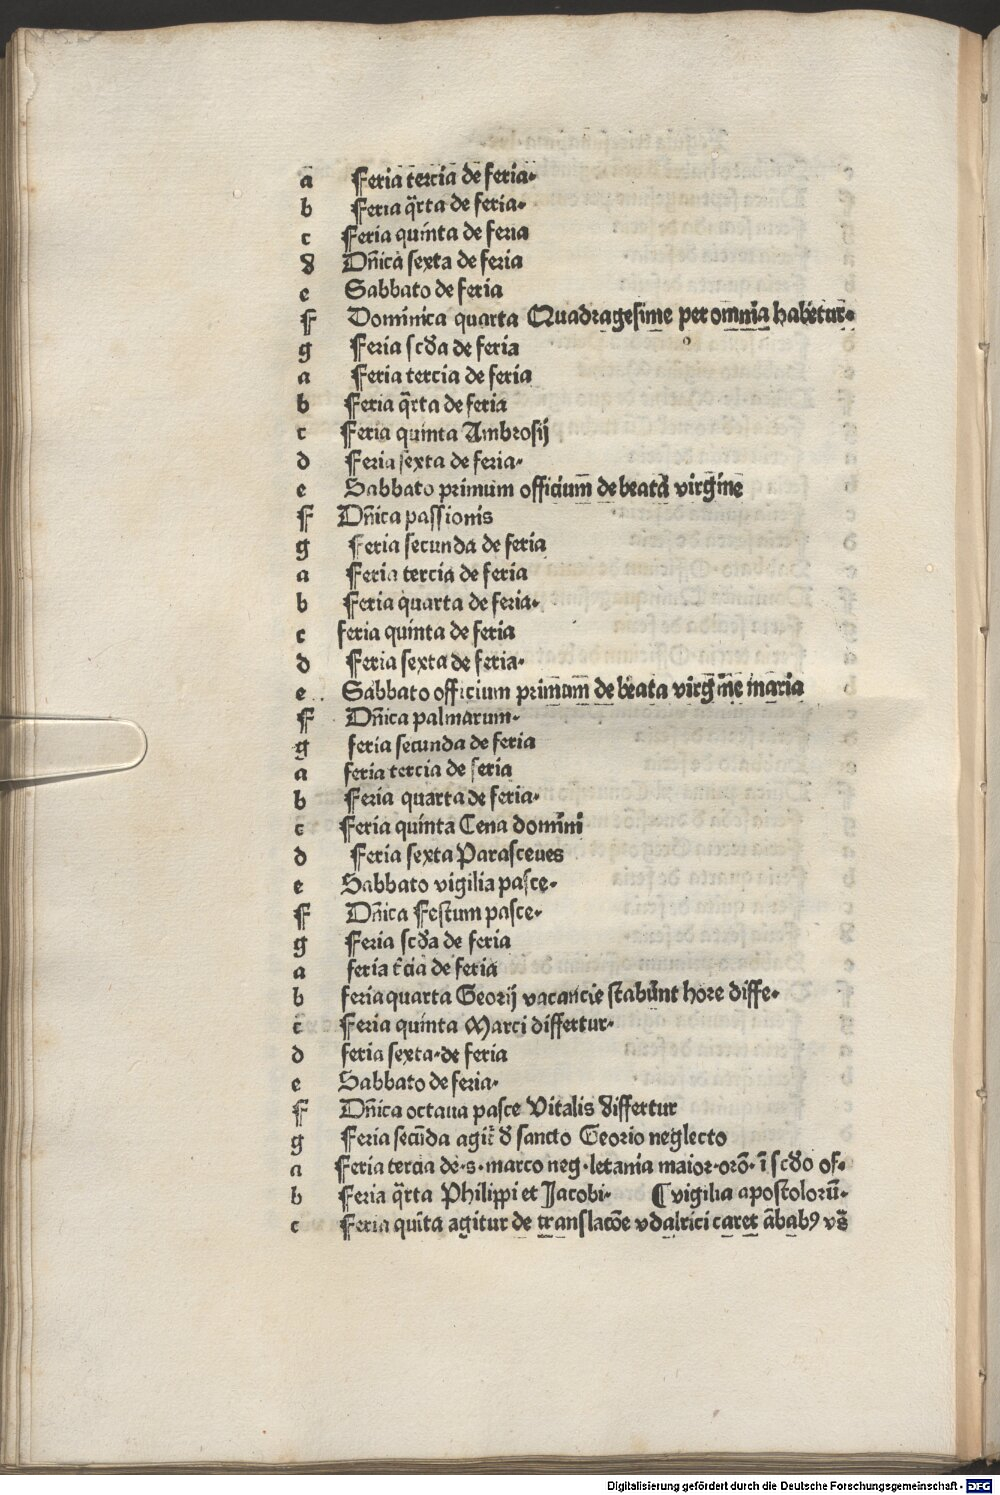 a Feria tercia de feria.
b Feria q̄rta de feria.
c Feria quinta de feria
d Dñica sexta de feria
e Sabbato de feria
f Dominica quarta Quadragesime per omnia habetur.
g Feria scḋa de feria
a Feria tercia de feria
b Feria q̄rta de feria
c Feria quinta Ambrosij
d Feria sexta de feria.
e Sabbato primum officium de beata virgine
f Dñica passionis
g Feria secunda de feria
a Feria tercia de feria
b Feria quarta de feria.
c feria quinta de feria
d Feria sexta de feria.
e Sabbato officium primum de beata virgine maria
f Dñica palmarum.
g feria secunda de feria
a feria tercia de feria
b Feria quarta de feria.
c Feria quinta Cena domini
d Feria sexta Parasceues
e Sabbato vigilia pasce.
f Dñica Festum pasce.
g Feria scḋa de feria
a feria t̄cia de feria
b feria quarta Georij vacancie stabūt hore diffe.
c Feria quinta Marci differtur.
d feria sexta.de feria
e Sabbato de feria.
f Dñica octaua pasce Vitalis differtur
g Feria secūda agit᷑ ḋ sancto Georio neglecto
a Feria tercia de.s.marco neg.letania maior.orō.ī scḋo of.
b Feria q̄rta Philippi et Jacobi. ¶vigilia apostolorū.
c Feria quīta agitur de translacōe vdalrici caret ābabꝰ vs̄
Digitalisierung gefördert durch die Deutsche Forschungsgemeinschaft - DFG